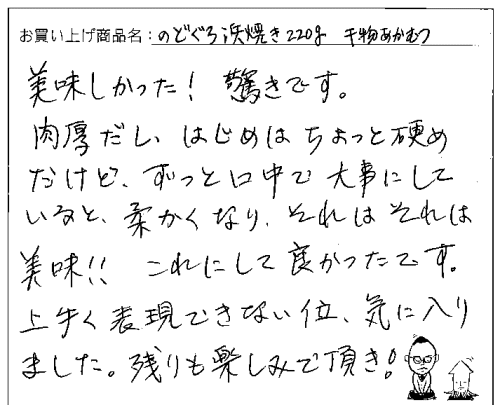 お買い上げ商品名：のどぐろ浜焼き220g 干物あかむつ
美味しかった！ 驚きです。
肉厚だし、はじめはちょっと硬め
だけど、ずっと口中で大事にして
いると、柔かくなり、それはそれは
美味!! これにして良かったです。
上手く表現できない位、気に入り
ました。残りも楽しみで頂き!